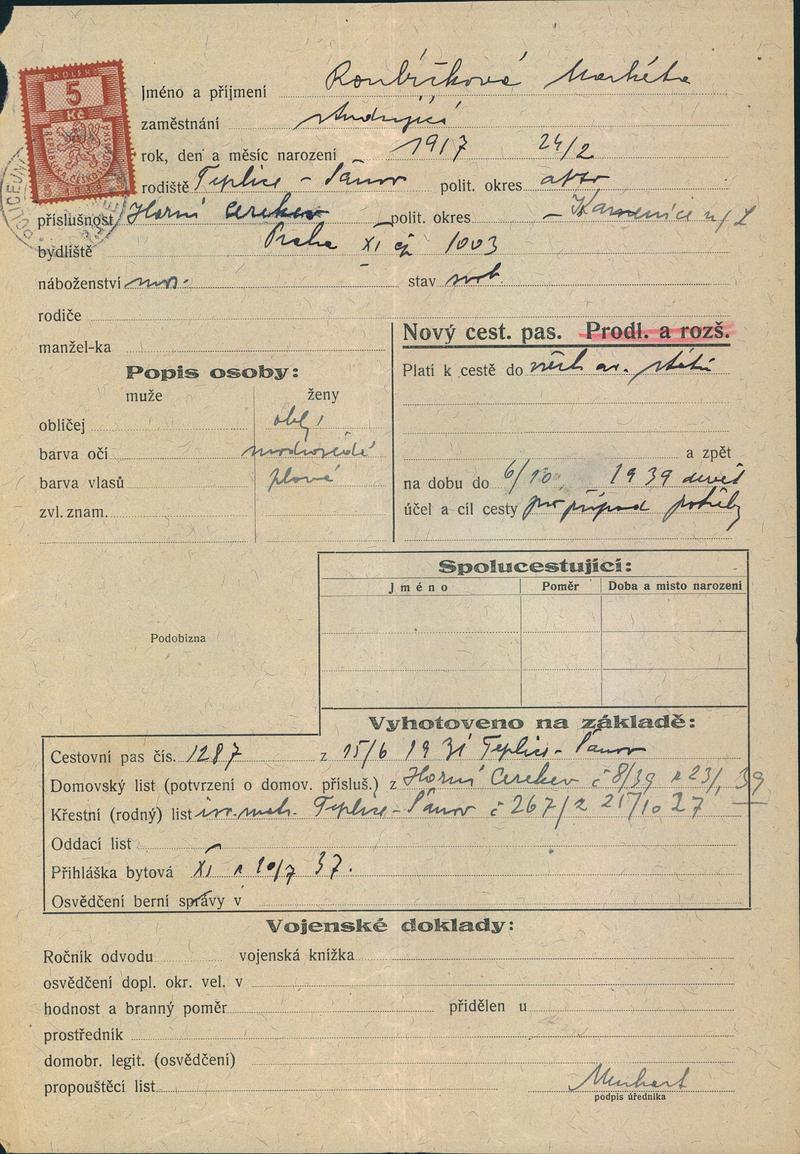 KOLEK
5
Kč
REPUBLIKA ČESKOSLOVENSKÁ
Jméno a příjmení Roubíčková Markéta
zaměstnání studující
rok, den a měsíc narození 1917 24/2
rodiště Teplice - Šanov polit. okres
příslušnost Horní Cerekev polit. okres - Kamenice n/L
bydliště Praha XI čp 1003
náboženství stav svob.
rodiče
manžel-ka
Nový cest. pas. Prodl. a rozš.
Platí k cestě do všech ev. států
Popis osoby:
muže ženy
obličej obl.
barva očí modrošedé
barva vlasů plavé
zvl. znam.
a zpět
na dobu do 6/10. 1939
účel a cíl cesty pro případ potřeby
Spolucestující:
Jméno Poměr Doba a misto narození
Podobizna
Vyhotoveno na základě:
Cestovní pas čís. 1287 z 15/6 1931 Teplice - Šanov
Domovský list (potvrzení o domov. přísluš.) z Horní Cerekev č 8/39 z 23/1 39
Křestní (rodný) list isr. matr. Teplice - Šanov č 267/2 21/10 27
Oddací list
Přihláška bytová XI z 10/7 37.
Osvědčení berní správy v
Vojenské doklady:
Ročník odvodu vojenská knížka
osvědčení dopl. okr. vel. v
hodnost a branný poměr přidělen u
prostředník
domobr. legit. (osvědčení)
propouštěcí list
podpis úředníka